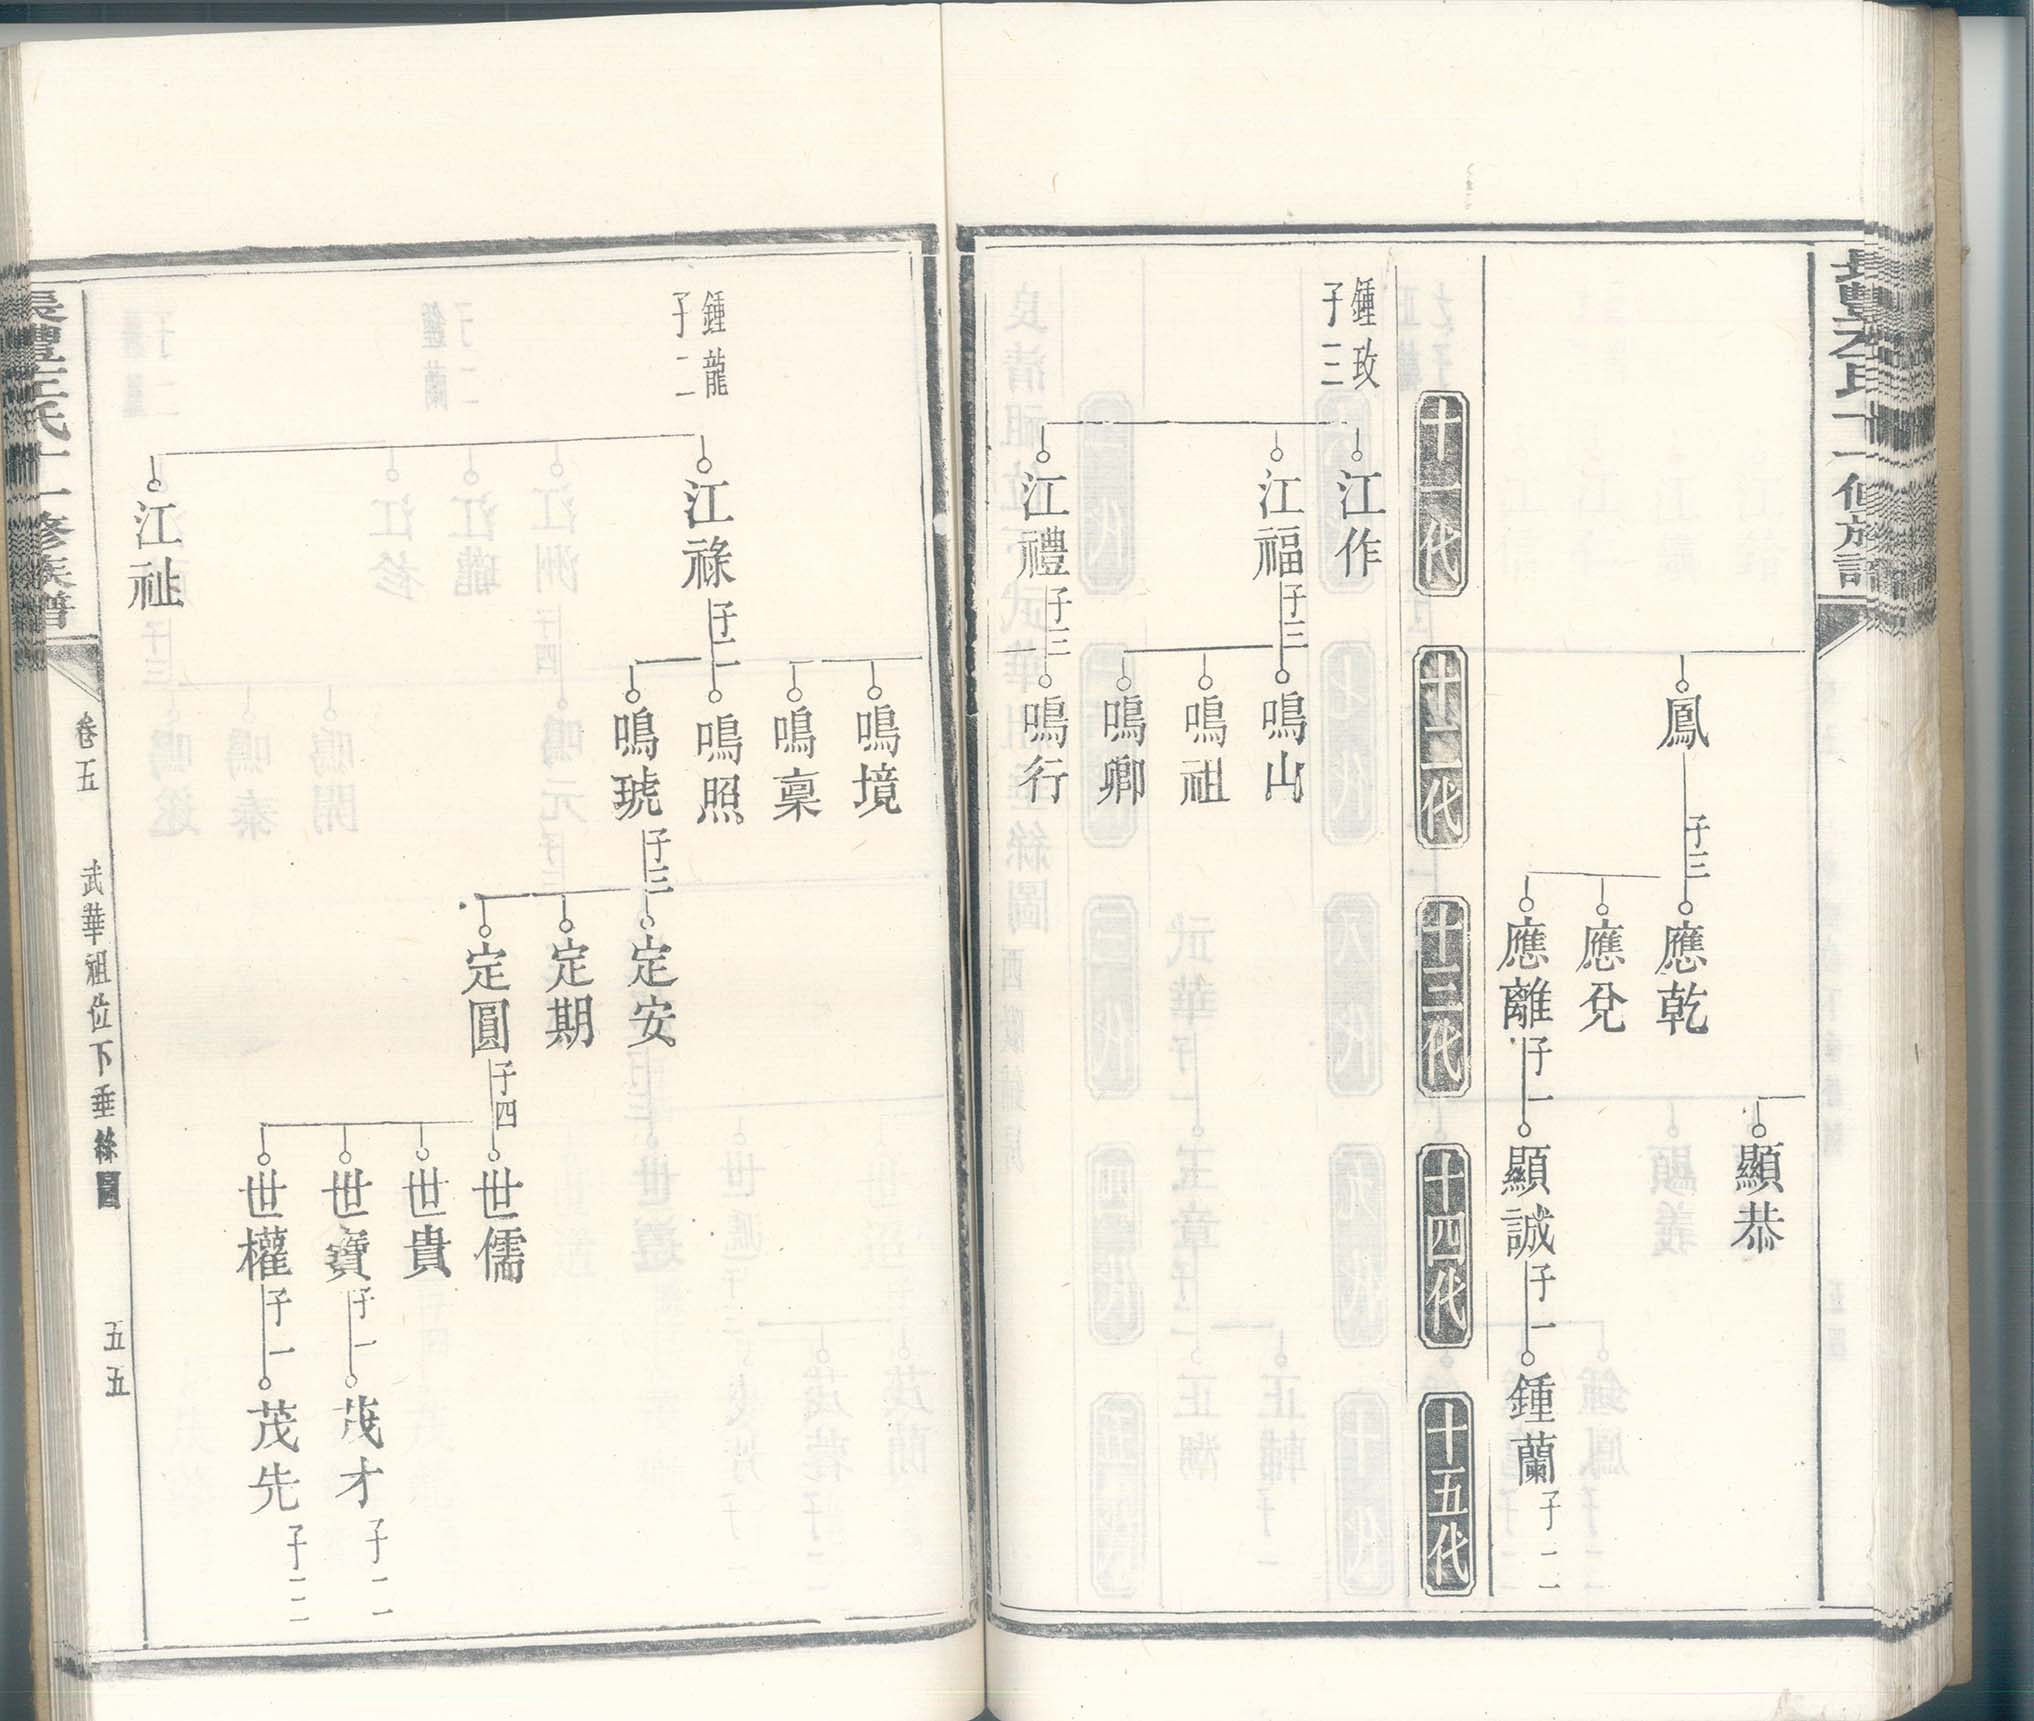 鳳
子三
應乾
應兌
應離
子一
顯恭
顯誠
子一
鍾蘭
子二
十一代
十二代
十三代
十四代
十五代
鍾玫
子三
江作
江福
子三
江禮
子三
鳴山
鳴祖
鳴卿
鳴行
鳴境
鳴稟
鍾龍
子二
江祿
子二
江祉
鳴照
鳴琥
子三
定安
定期
定圓
子四
世儒
世貴
世寶
子一
世權
子一
茂才
子二
茂先
子三
氏十一修族譜
卷五
武華祖位下垂絲圖
五五